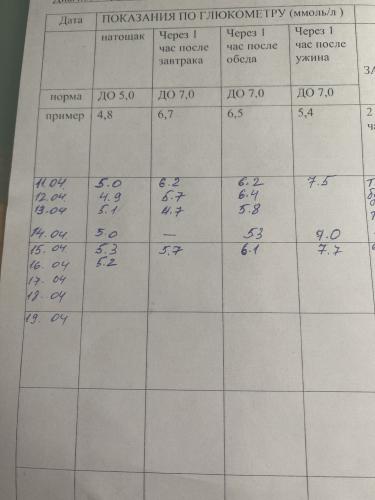 Дата ПОКАЗАНИЯ ПО ГЛЮКОМЕТРУ (ммоль/л )
натощак Через 1 час после завтрака Через 1 час после обеда Через 1 час после ужина
норма ДО 5,0 ДО 7,0 ДО 7,0 ДО 7,0
пример 4,8 6,7 6,5 5,4 2
11.04 5.0 6.2 6.2 7.5
12.04 4.9 5.7 6.4
13.04 5.1 4.7 5.8
14.04 5.0 — 5.3
15.04 5.3 5.7 6.1 7.7
16.04 5.2
17.04
18.04
19.04